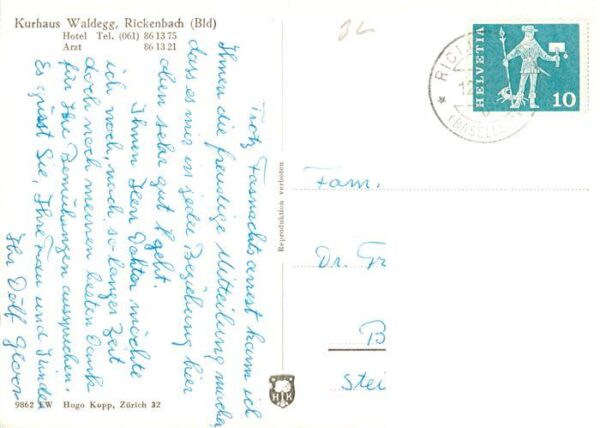 Kurhaus Waldegg, Rickenbach (Bld)
Hotel Tel. (061) 86 13 75
Arzt 86 13 21
Trotz Fasnachtsarrest kann ich
Ihnen die freudige Mitteilung machen
dass es mir in jeder Beziehung hier
oben sehr gut geht.
Ihnen Herr Doktor möchte
ich noch, nach so langer Zeit
doch noch meinen besten Dank
für Ihre Bemühungen aussprechen.
Es grüsst Sie, Ihre Frau und Kinder
Ihr Dölf
Reproduktion verboten
HELVETIA
10
Fam.
Dr. Fr
B
Stei
H K
9862 LW Hugo Kopp, Zürich 32